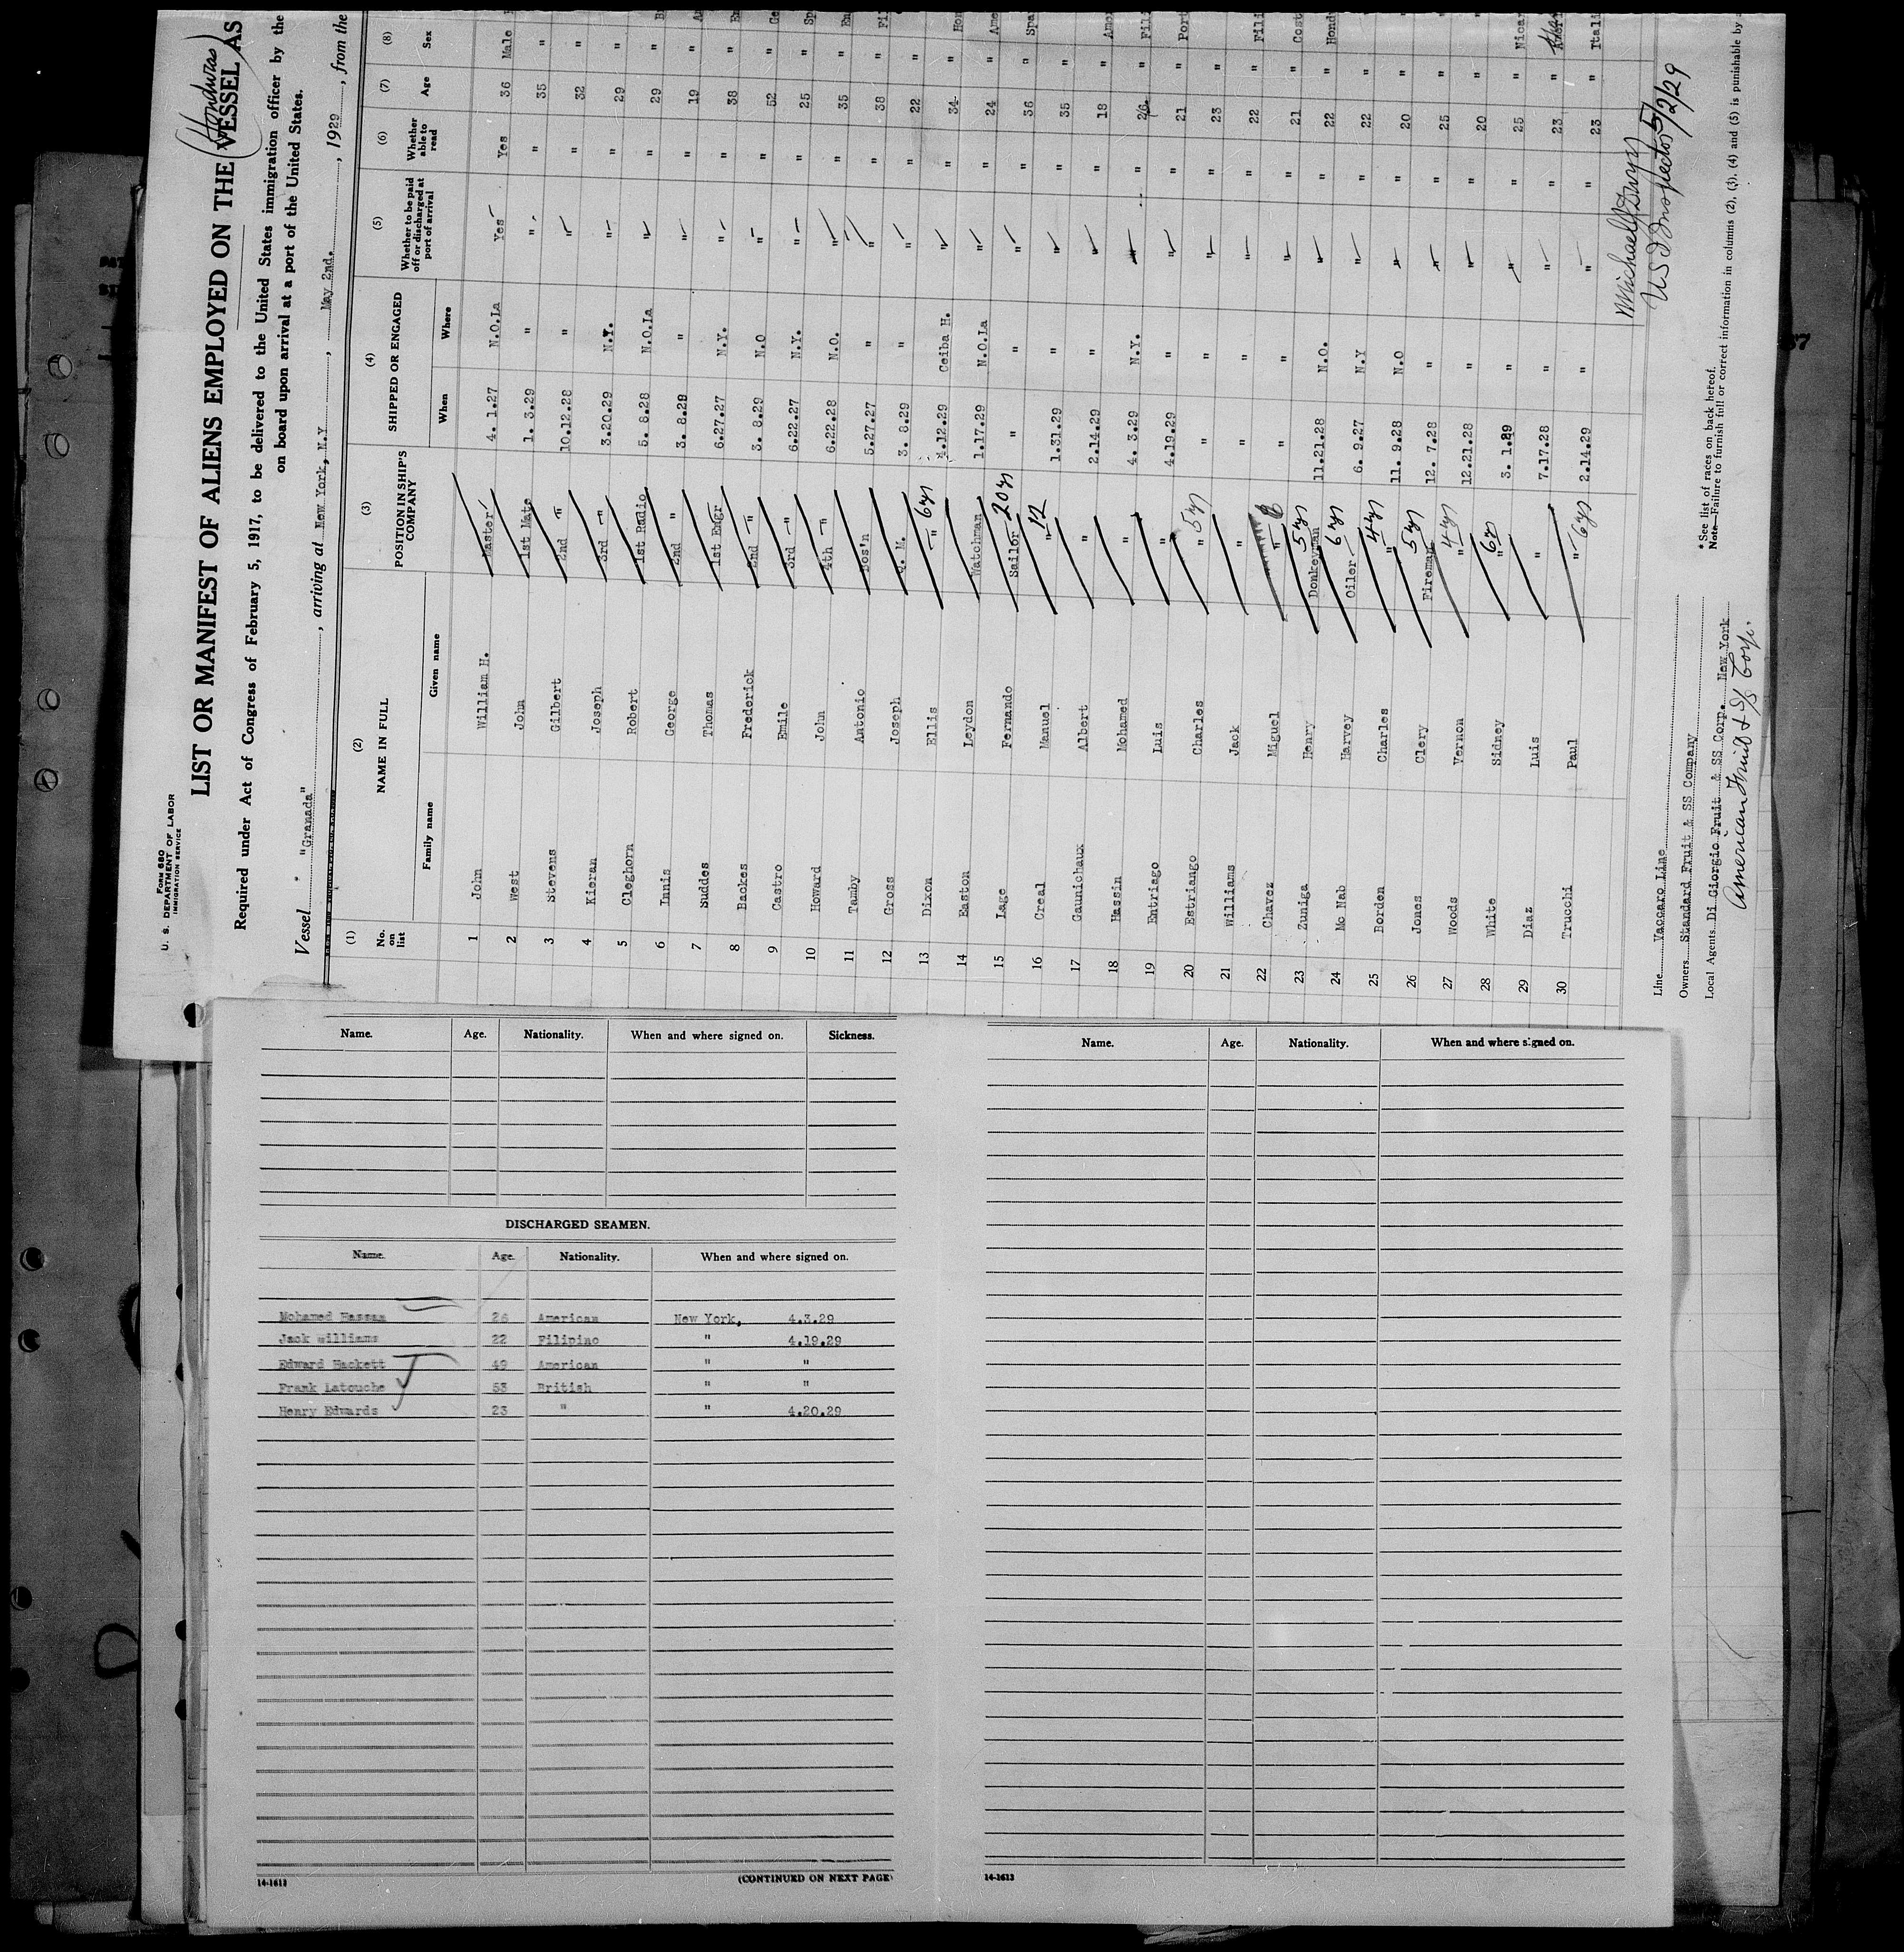 U. S. DEPARTMENT OF LABOR
Form 680
IMMIGRATION SERVICE
(Honduras)
LIST OR MANIFEST OF ALIENS EMPLOYED ON THE VESSEL AS
Required under Act of Congress of February 5, 1917, to be delivered to the United States immigration officer by the
on board upon arrival at a port of the United States.
Vessel "Granada", arriving at New York, N.Y, May 2nd., 1929, from the
(1) (2) (3) (4) (5) (6) (7) (8)
No. on list NAME IN FULL POSITION IN SHIP'S COMPANY SHIPPED OR ENGAGED Whether to be paid off or discharged at port of arrival Whether able to read Age Sex
Family name Given name When Where
1 John William H. Master 4. 1.27 N.O.La Yes Yes 36 Male
2 West John 1st Mate 1. 3.29 " " " 35 "
3 Stevens Gilbert 2nd " 10.12.28 " " " 32 "
4 Kieran Joseph 3rd " 3.20.29 N.Y. " " 29 "
5 Cleghorn Robert 1st Radio 5. 8.28 N.O.La " " 29 " B
6 Innis George 2nd " 3. 8.29 " " " 19 " A
7 Suddes Thomas 1st Engr 6.27.27 N.Y. " " 38 " E
8 Backes Frederick 2nd " 3. 8.29 N.O " " 52 " Ge
9 Castro Emile 3rd " 6.22.27 N.Y. " " 25 " Sp
10 Howard John 4th " 6.22.28 N.O. " " 35 " En
11 Tanby Antonio Bos'n 5.27.27 " " " 38 " Fil
12 Gross Joseph Q. M. 3. 8.29 " " " 22 "
13 Dixon Ellis " 6 yrs 4.12.29 Ceiba H. " " 34 " Hon
14 Easton Leydon Watchman 1.17.29 N.O.La " " 24 " Ame
15 Lage Fernando Sailor 20 yrs " " " " 36 " Spa
16 Creal Manuel " 12 1.31.29 " " " 35 "
17 Gaunichaux Albert " 2.14.29 " " " 18 " Amer
18 Hassin Mohamed " 4. 3.29 N.Y. " " 26 " Fili
19 Entriago Luis " 4.19.29 " " " 21 " Port
20 Estriango Charles " 5 yrs " " " " 23 "
21 Williams Jack " " " " " 22 " Fili
22 Chavez Miguel " " " " " 21 " Cost
23 Zuniga Henry Donkeyman 5 yrs 11.21.28 N.O. " " 22 " Hond
24 Mc Nab Harvey Oiler 6 yrs 6. 9.27 N.Y " " 22 " "
25 Borden Charles " 4 yrs 11. 9.28 N.O " " 20 " "
26 Jones Clery Fireman 5 yrs 12. 7.28 " " " 25 " "
27 Woods Vernon " 4 yrs 12.21.28 " " " 20 " "
28 White Sidney " 6 yrs 3. 1.29 " " " 25 " Nicar
29 Diaz Luis " 7.17.28 " " " 23 " Amer
30 Trucchi Paul " 6 yrs 2.14.29 " " " 23 " Itali
Michael
U S Inspector 5/2/29
Line Vaccaro Line
Owners Standard Fruit & SS Company
Local Agents Di Giorgio Fruit & SS Corp. New York
American Fruit & S/S Corp.
* See list of races on back hereof.
Note.—Failure to furnish full or correct information in columns (2), (3), (4) and (5) is punishable by
Name. Age. Nationality. When and where signed on. Sickness.
DISCHARGED SEAMEN.
Name. Age. Nationality. When and where signed on.
Mohamed Hassan 26 American New York, 4.3.29
Jack Williams 22 Filipino " 4.19.29
Edward Hackett 49 American " "
Frank Latouche 53 British " "
Henry Edwards 23 " " 4.20.29
14-1613
(CONTINUED ON NEXT PAGE)
Name. Age. Nationality. When and where signed on.
14-1613